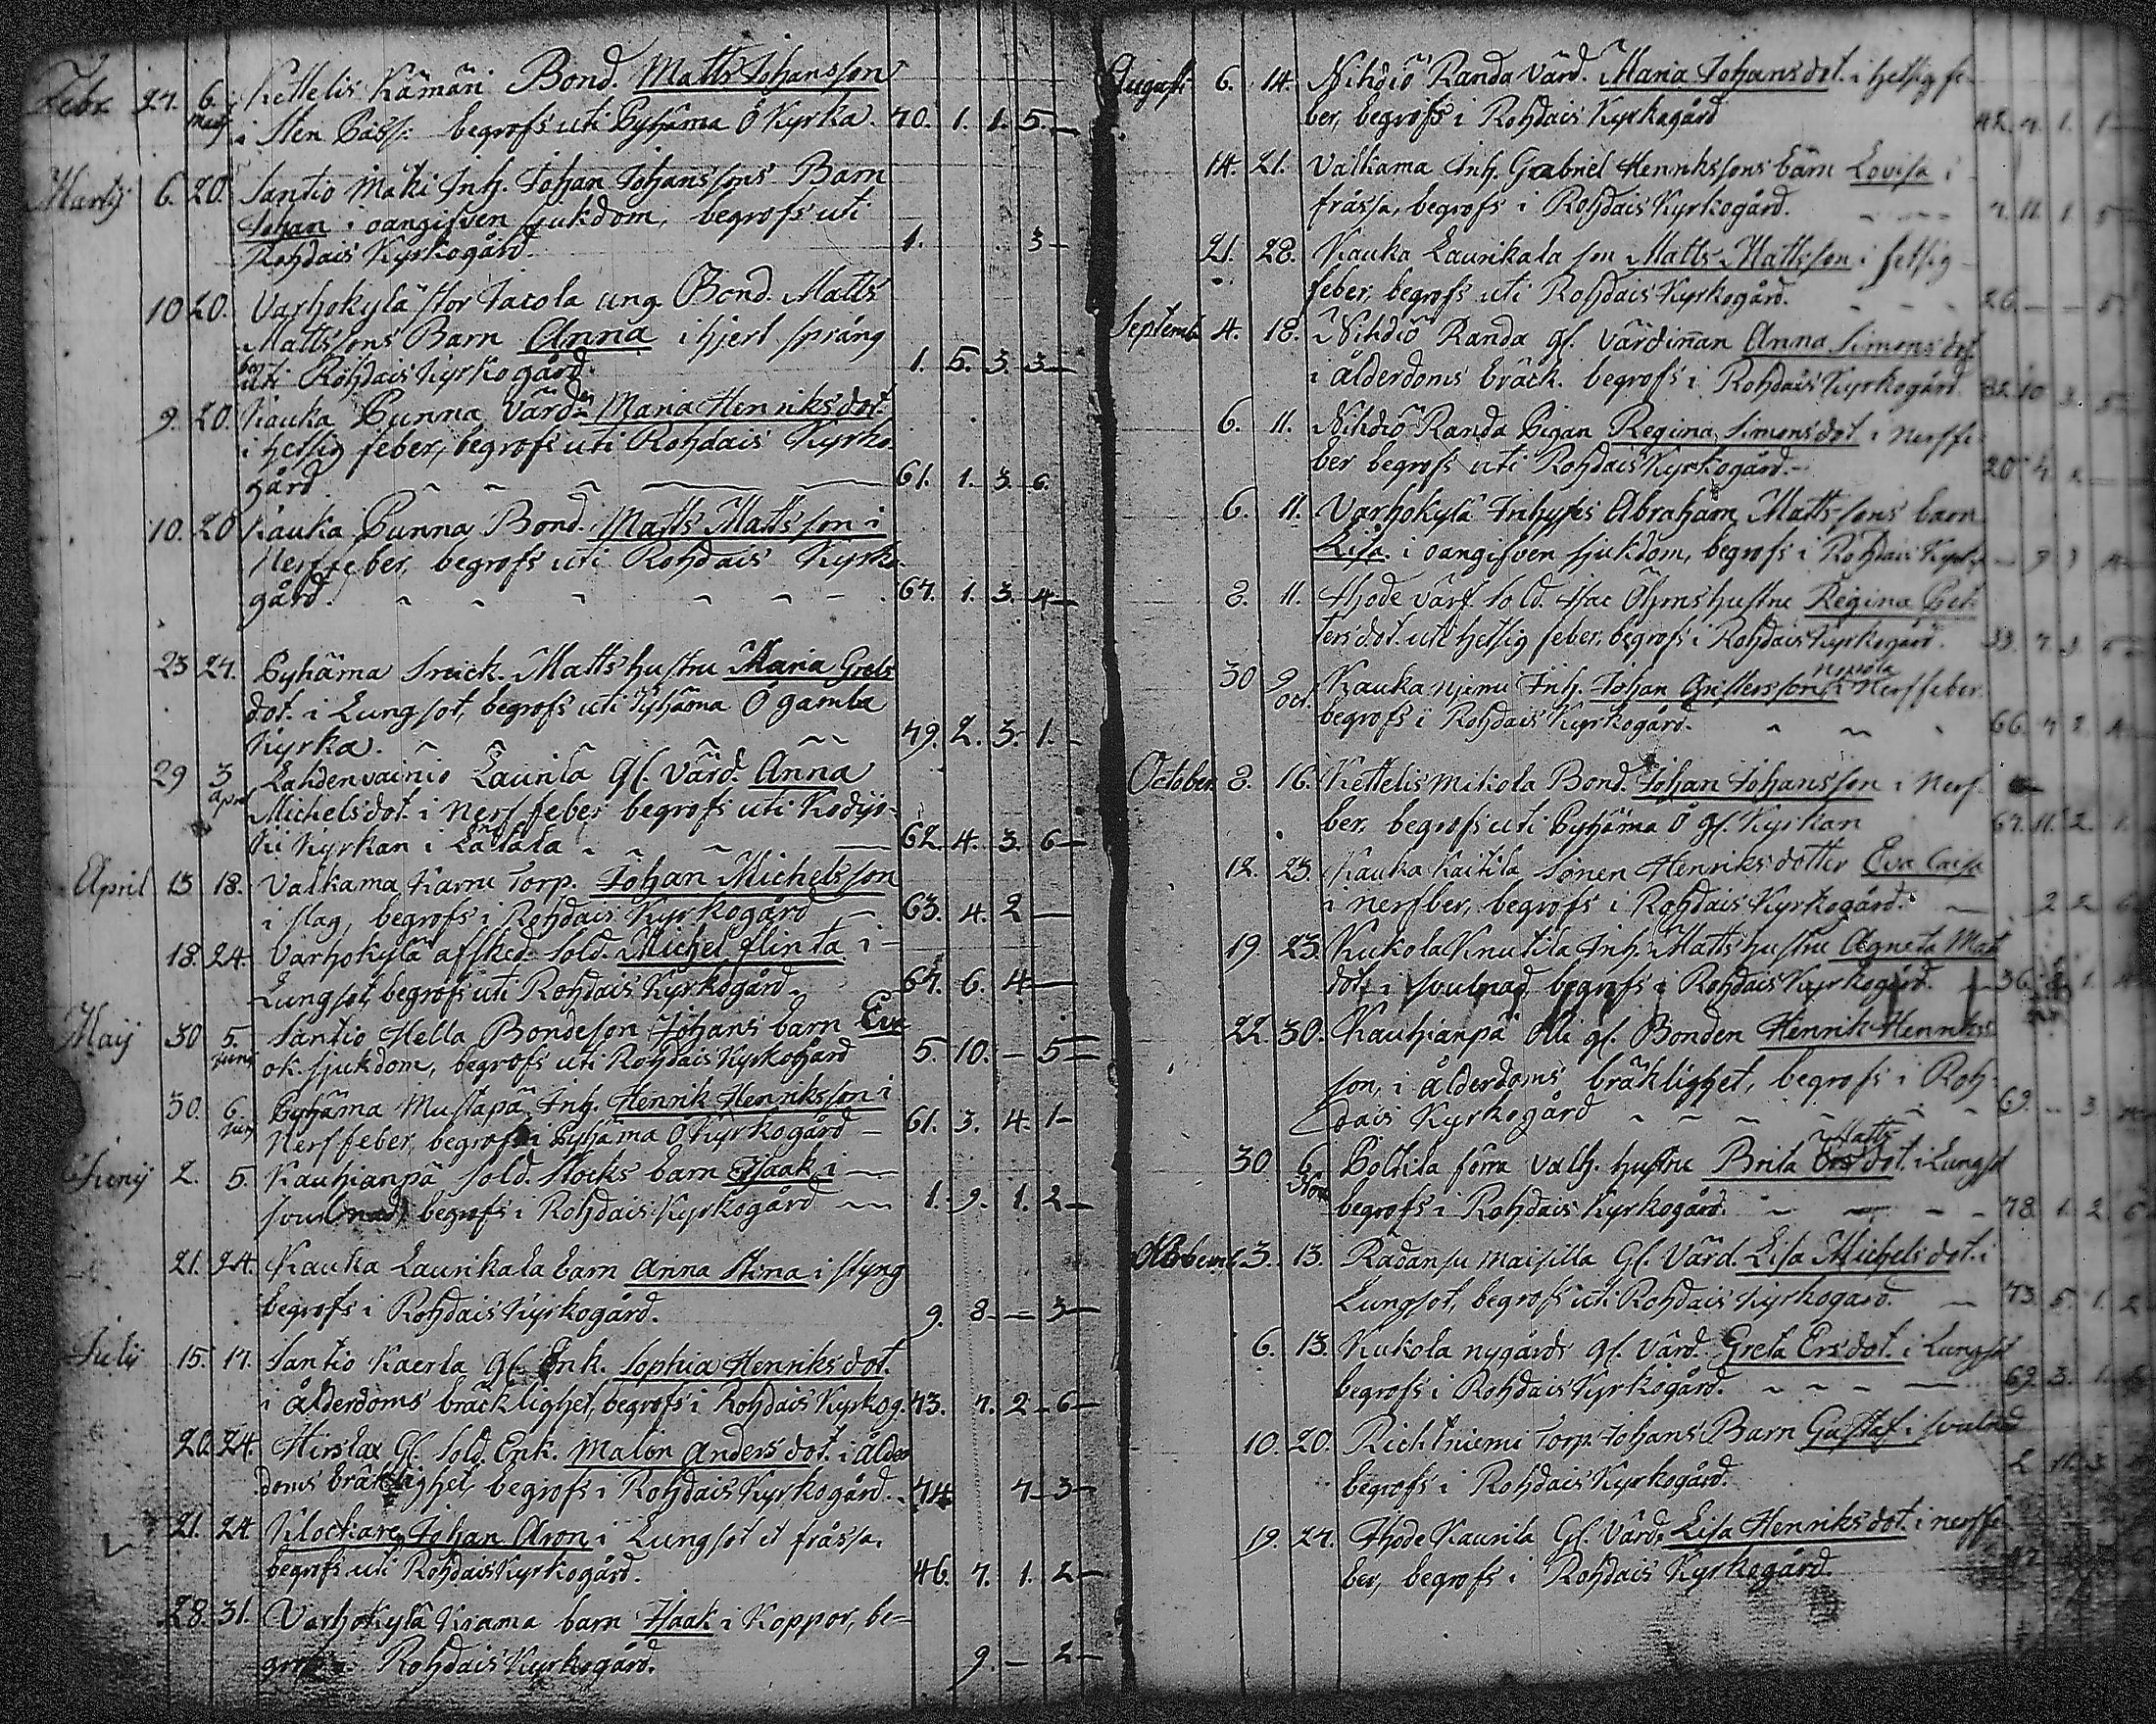 Febr 24. 6. Kettelis Kämäri Bond. Matts Johansson
i Sten Påss: begrofs uti Pyhäma Ö Kyrka. 70. 1. 1. 5. —
Martij 6. 20. Santio Mäki Inh. Johan Johanssons Barn
Johan i oangifven sjukdom, begrofs uti
Rohdais Kyrkogård. 1. 3 —
10 20. Varhokylä stor Jacola ung Bond. Matts
Mattssons Barn Anna i hjert språng
uti Rohdais Kyrkogård. 1. 5. 3. 3 —
9. 20. Kauka Punna Värd: Maria Henriksdot.
i hetsig feber, begrofs uti Rohdais Kyrko-
gård 61. 1. 3. 6.
10. 20 Kauka Punna Bond. Matts Mattsson i
Nerffeber, begrofs uti Rohdais Kyrko-
gård. 67. 1. 3. 4 —
23 27. Pyhäma Snick. Matts hustru Maria Grels
dot. i Lungsot, begrofs uti Pyhäma Ö gamla
Kyrka. 49. 2. 3. 1. -
29 3 April Lahdenvainio Laurila gl. Värd. Anna
Michelsdot. i Nerffeber begrofs uti Kodijo-
ki Kyrkan i Lattala 62. 4. 3. 6 —
April 15 18. Valkama Karru Torp. Johan Michelsson
i slag, begrofs i Rohdais Kyrkogård 63. 4. 2 —
18. 24. Varhokylä afsked. Sold. Michel flinta i
Lungsot, begrofs uti Rohdais Kyrkogård. 67. 6. 4 —
Maij 30 5. Junij Santio Hella Bondeson Johans barn Eva
ok. sjukdom, begrofs uti Rohdais Kyrkogård 5. 10. — 5 —
30. 6. Jun Pyhäma Mustapä Inh. Henrik Henriksson i
Nerffeber, begrofs i Pyhäma Ö Kyrkogård — 61. 3. 4. 1 —
Junij 2. 5. Kauhianpä Sold. Stocks barn Isaak i
svulnad, begrofs i Rohdais Kyrkogård 1. 9. 1. 2 —
21. 24. Kauka Laurikala barn Anna Stina i styng
begrofs i Rohdais Kyrkogård. 9. 8 — 3 —
Julij 15. 17. Santio Kaerla gl. Enk. Sophia Henriksdot.
i ålderdoms bräcklighet, begrofs i Rohdais Kyrkog. 73. 7. 2 - 6 —
20. 24. Hirslax Gl. Sold. Enk. Malin Andersdot. i ålder
doms bräklighet, begrofs i Rohdais Kyrkogård. 74 7 - 3 —
21. 24 Klockaren Johan Aron i Lungsot et fråssa.
begrofs uti Rohdais Kyrkogård. 46. 7. 1. 2 —
28. 31. Varhokylä Krama barn Isaak i Koppor, be-
Rohdais Kyrkogård. 9. — 2 —
August 6. 14. Nihdiö Randa Värd. Maria Johansdot. i hetsig fe-
ber, begrofs i Rohdais Kyrkogård
14. 21. Valkama Inh. Gabriel Henrikssons barn Lovisa i
fråssa, begrofs i Rohdais Kyrkogård. 7. 11. 1. 5
21. 28. Kauka Laurikala son Matts Mattsson i hetsig
feber, begrofs uti Rohdais Kyrkogård. 26. — — 5.
Septemb. 4. 18. Nihdiö Randa gl. Värdinnan Anna Simonsdot.
i ålderdoms bräck. begrofs i Rohdais Kyrkogård 10 3. 5
6. 11. Nihdiö Randa Pigan Regina Simonsdot i Nerffe-
ber begrofs uti Rohdais Kyrkogård.
6. 11. Varhokylä Inhyses Abraham Mattssons barn
Lisa i oangifven sjukdom, begrofs i Rohdais
8. 11. Ihode värf. Sold. Isac Öhms hustru Regina Pet-
tersdot. uti hetsig feber, begrofs i Rohdais Kyrkogård. 33. 7. 3. 5
30 9 oct. Kauka Njemi Inh. Johan Gustersson i Nerffeber
begrofs i Rohdais Kyrkogård. 66. 7 2
October 8. 16. Kettelis Mikola Bond. Johan Johansson i Nerf
ber, begrofs uti Pyhäma Ö gl. Kyrkan 67. 11. 2. 1.
12. 23. Kauka Kaitila Sonen Henriks dotter Eva Caisa
i nerfber, begrofs i Rohdais Kyrkogård. 2 2 6
19. 23. Kukola Knutila Inh. Matts hustru Agneta Mat
dot. i svulnad begrofs i Rohdais Kyrkogård. 36.
22. 30. Kauhianpä Olli gl. Bonden Henrik Henriks
son, i ålderdoms bräklighet, begrofs i Roh-
dais Kyrkogård 69. — 3
30 6 Nov Poltila förra Valh. hustru Brita Matts dot. i Lungsot
begrofs i Rohdais Kyrkogård. 78. 1. 2. 6
3. 13. Radansu Maisilla Gl. Värd. Lisa Michelsdot. i
Lungsot, begrofs uti Rohdais Kyrkogård. 73. 5. 1. 2
6. 13. Kukola nygårds gl. Värd. Greta Ersdot. i Lungsot
begrofs i Rohdais Kyrkogård. 69. 3. 1.
10. 20. Richtniemi Torp. Johans Barn Gustaf i svulnad
begrofs i Rohdais Kyrkogård.
19. 27. Ihode Kaurila Gl. Värd. Lisa Henriksdot. i nerffe-
ber, begrofs i Rohdais Kyrkogård.